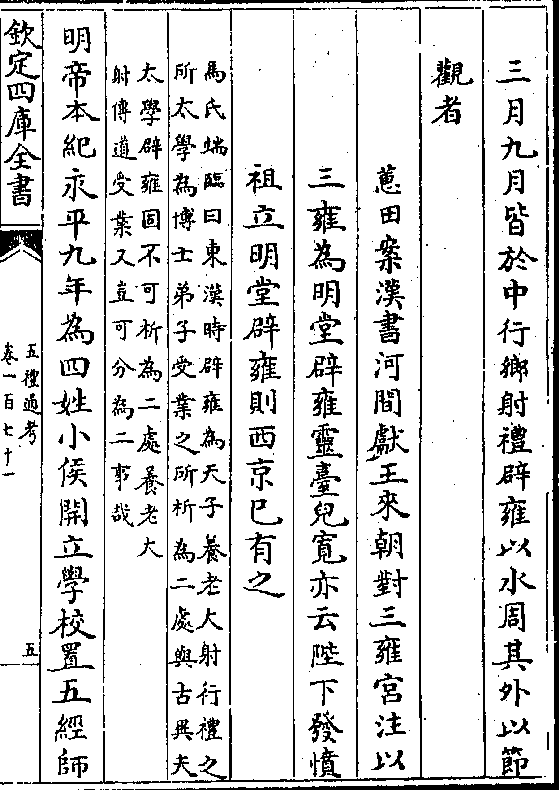 三月九月皆於中行鄉射禮辟雍以水周其外以節
觀者
蕙田案漢書河間獻王來朝對三雍宮注以
三雍為明堂辟雍靈臺兒寛亦云陛下發憤
祖立明堂辟雍則西京已有之
馬氏端臨曰東漢時辟雍為天子養老大射行禮之
所太學為博士弟子受業之所析為二處與古異夫
太學辟雍固不可析為二處養老大
射傳道受業又豈可分為二事哉
明帝本紀永平九年為四姓小侯開立學校置五經師
欽定四庫全書
五禮通考
卷一百七十一
五